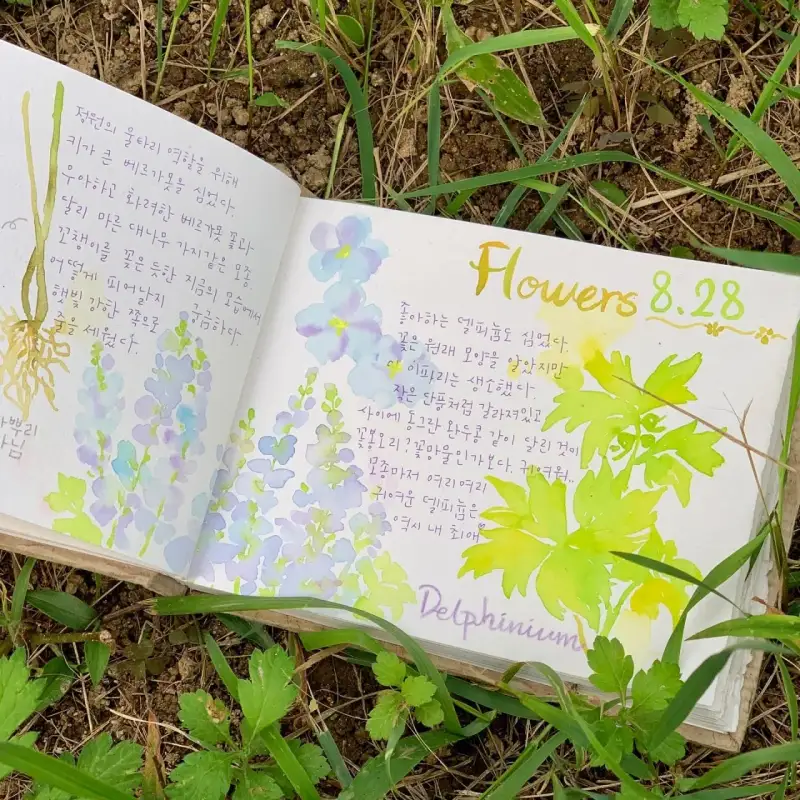 정원의 울타리 역할을 위해
키가 큰 베르가못을 심었다.
우아하고 화려한 베르가못 꽃과
달리 마른 대나무 가지같은 모종.
꼬챙이를 꽂은 듯한 지금의 모습에서
어떻게 피어날지 궁금하다.
햇빛 강한 쪽으로
줄을 세웠다.
Flowers 8.28
좋아하는 델피늄도 심었다.
꽃은 원래 모양을 알았지만
이파리는 생소했다.
작은 단풍처럼 갈라져있고
사이에 동그란 완두콩 같이 달린 것이
꽃봉오리? 꽃망울인가보다. 귀여워..
모종마저 여리여리
귀여운 델피늄은
역시 내 최애
Delphinium